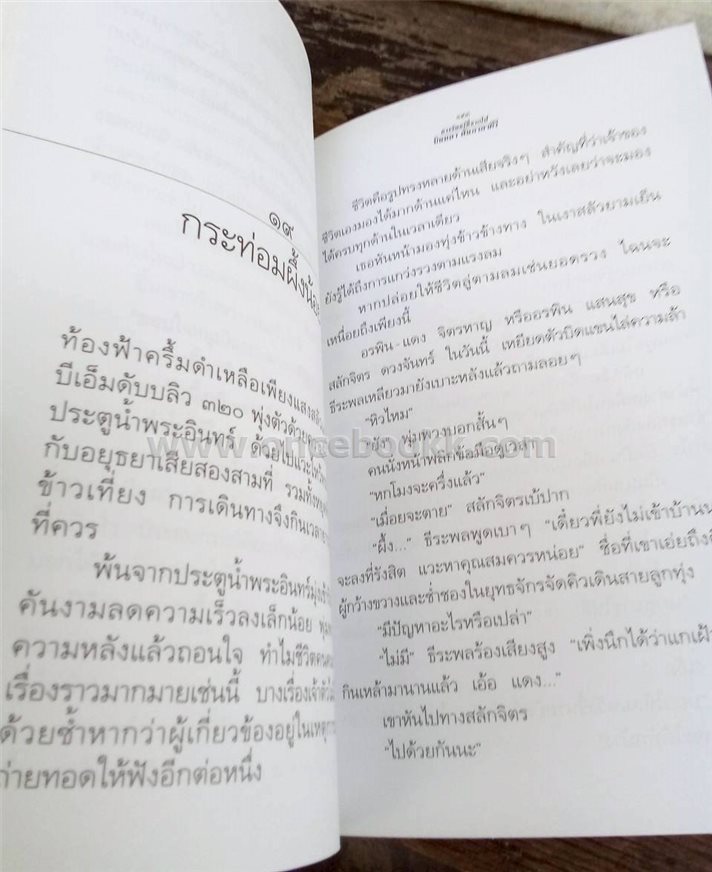 ๑๙
กระท่อมผึ้งน้อย
ท้องฟ้าครึ้มดำเหลือเพียงแสง
บีเอ็มดับบลิว ๓๒๐ พุ่งตัวด้วย
ประตูน้ำพระอินทร์ ด้วยไปแวะไหว้
กับอยุธยาเสียสองสามที่ รวมทั้งหยุด
ข้าวเที่ยง การเดินทางจึงกินเวลา
ที่ควร
พ้นจากประตูน้ำพระอินทร์มุ่งเข้า
คันงามลดความเร็วลงเล็กน้อย
ความหลังแล้วถอนใจ ทำไมชีวิตคน
เรื่องราวมากมายเช่นนี้ บางเรื่องเจ้าตัว
ด้วยซ้ำหากว่าผู้เกี่ยวข้องอยู่ในเหตุ
ถ่ายทอดให้ฟังอีกต่อหนึ่ง
ชีวิตคือรูปทรงหลายด้านเสียจริงๆ สำคัญที่ว่าเจ้าของ
ชีวิตเองมองได้มากด้านแค่ไหน และอย่าหวังเลยว่าจะมอง
ได้ครบทุกด้านในเวลาเดียว
เธอหันหน้ามองทุ่งข้าวข้างทาง ในเงาสลัวยามเย็น
ยังรู้ได้ถึงการแกว่งรวงตามแรงลม
หากปล่อยให้ชีวิตลู่ตามลมเช่นยอดรวง ไฉนจะ
เหนื่อยถึงเพียงนี้
อรพิน-แดง จิตรหาญ หรืออรพิน แสนสุข หรือ
สลักจิตร ดวงจันทร์ ในวันนี้ เหยียดตัวบิดแขนไล่ความล้า
ธีระพลเหลียวมายังเบาะหลังแล้วถามลอยๆ
“หิวไหม”
“ยัง” พุ่มพวงบอกสั้นๆ
คนนั่งหน้าพลิกข้อมือดูเวลา
“หกโมงจะครึ่งแล้ว”
“เมื่อยจะตาย” สลักจิตรเบ้ปาก
“ผึ้ง...” ธีระพลพูดเบาๆ “เดี๋ยวพี่ยังไม่เข้าบ้านน
จะลงที่รังสิต แวะหาคุณสมควรหน่อย” ชื่อที่เขาเอ่ยถึง
ผู้กว้างขวางและช่ำชองในยุทธจักรจัดคิวเดินสายลูกทุ่ง
“มีปัญหาอะไรหรือเปล่า”
“ไม่มี” ธีระพลร้องเสียงสูง “เพิ่งนึกได้ว่าแกเฝ้า
กินเหล้ามานานแล้ว เอ้อ แดง...”
เขาหันไปทางสลักจิตร
“ไปด้วยกันนะ”
www.oncebookk.com